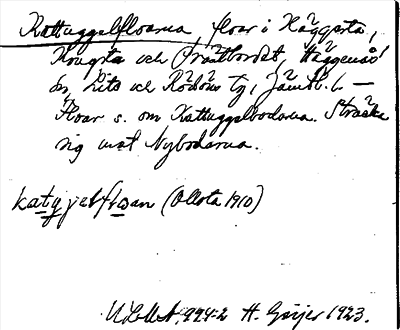 Kattuggelfloarna, floar i Häggsta,
Kougsta och Prästbordet, Häggenås
sn, Lits och Rödöns tg, Jämtl. l. —
Floar s. om Kattuggelbodarna. Sträcka
sig mot Nybodarna.
katyjelfloan (Ollota 1910)
ULMA. 994:2 H. Geijer 1923.